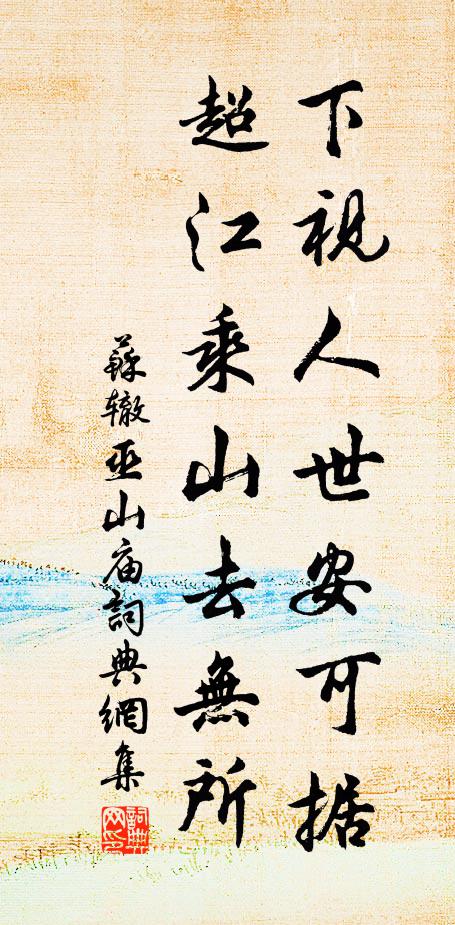 下視人世安可据
超江乘山去無所
蘇辙巫山庙詞典網集
詞典网印